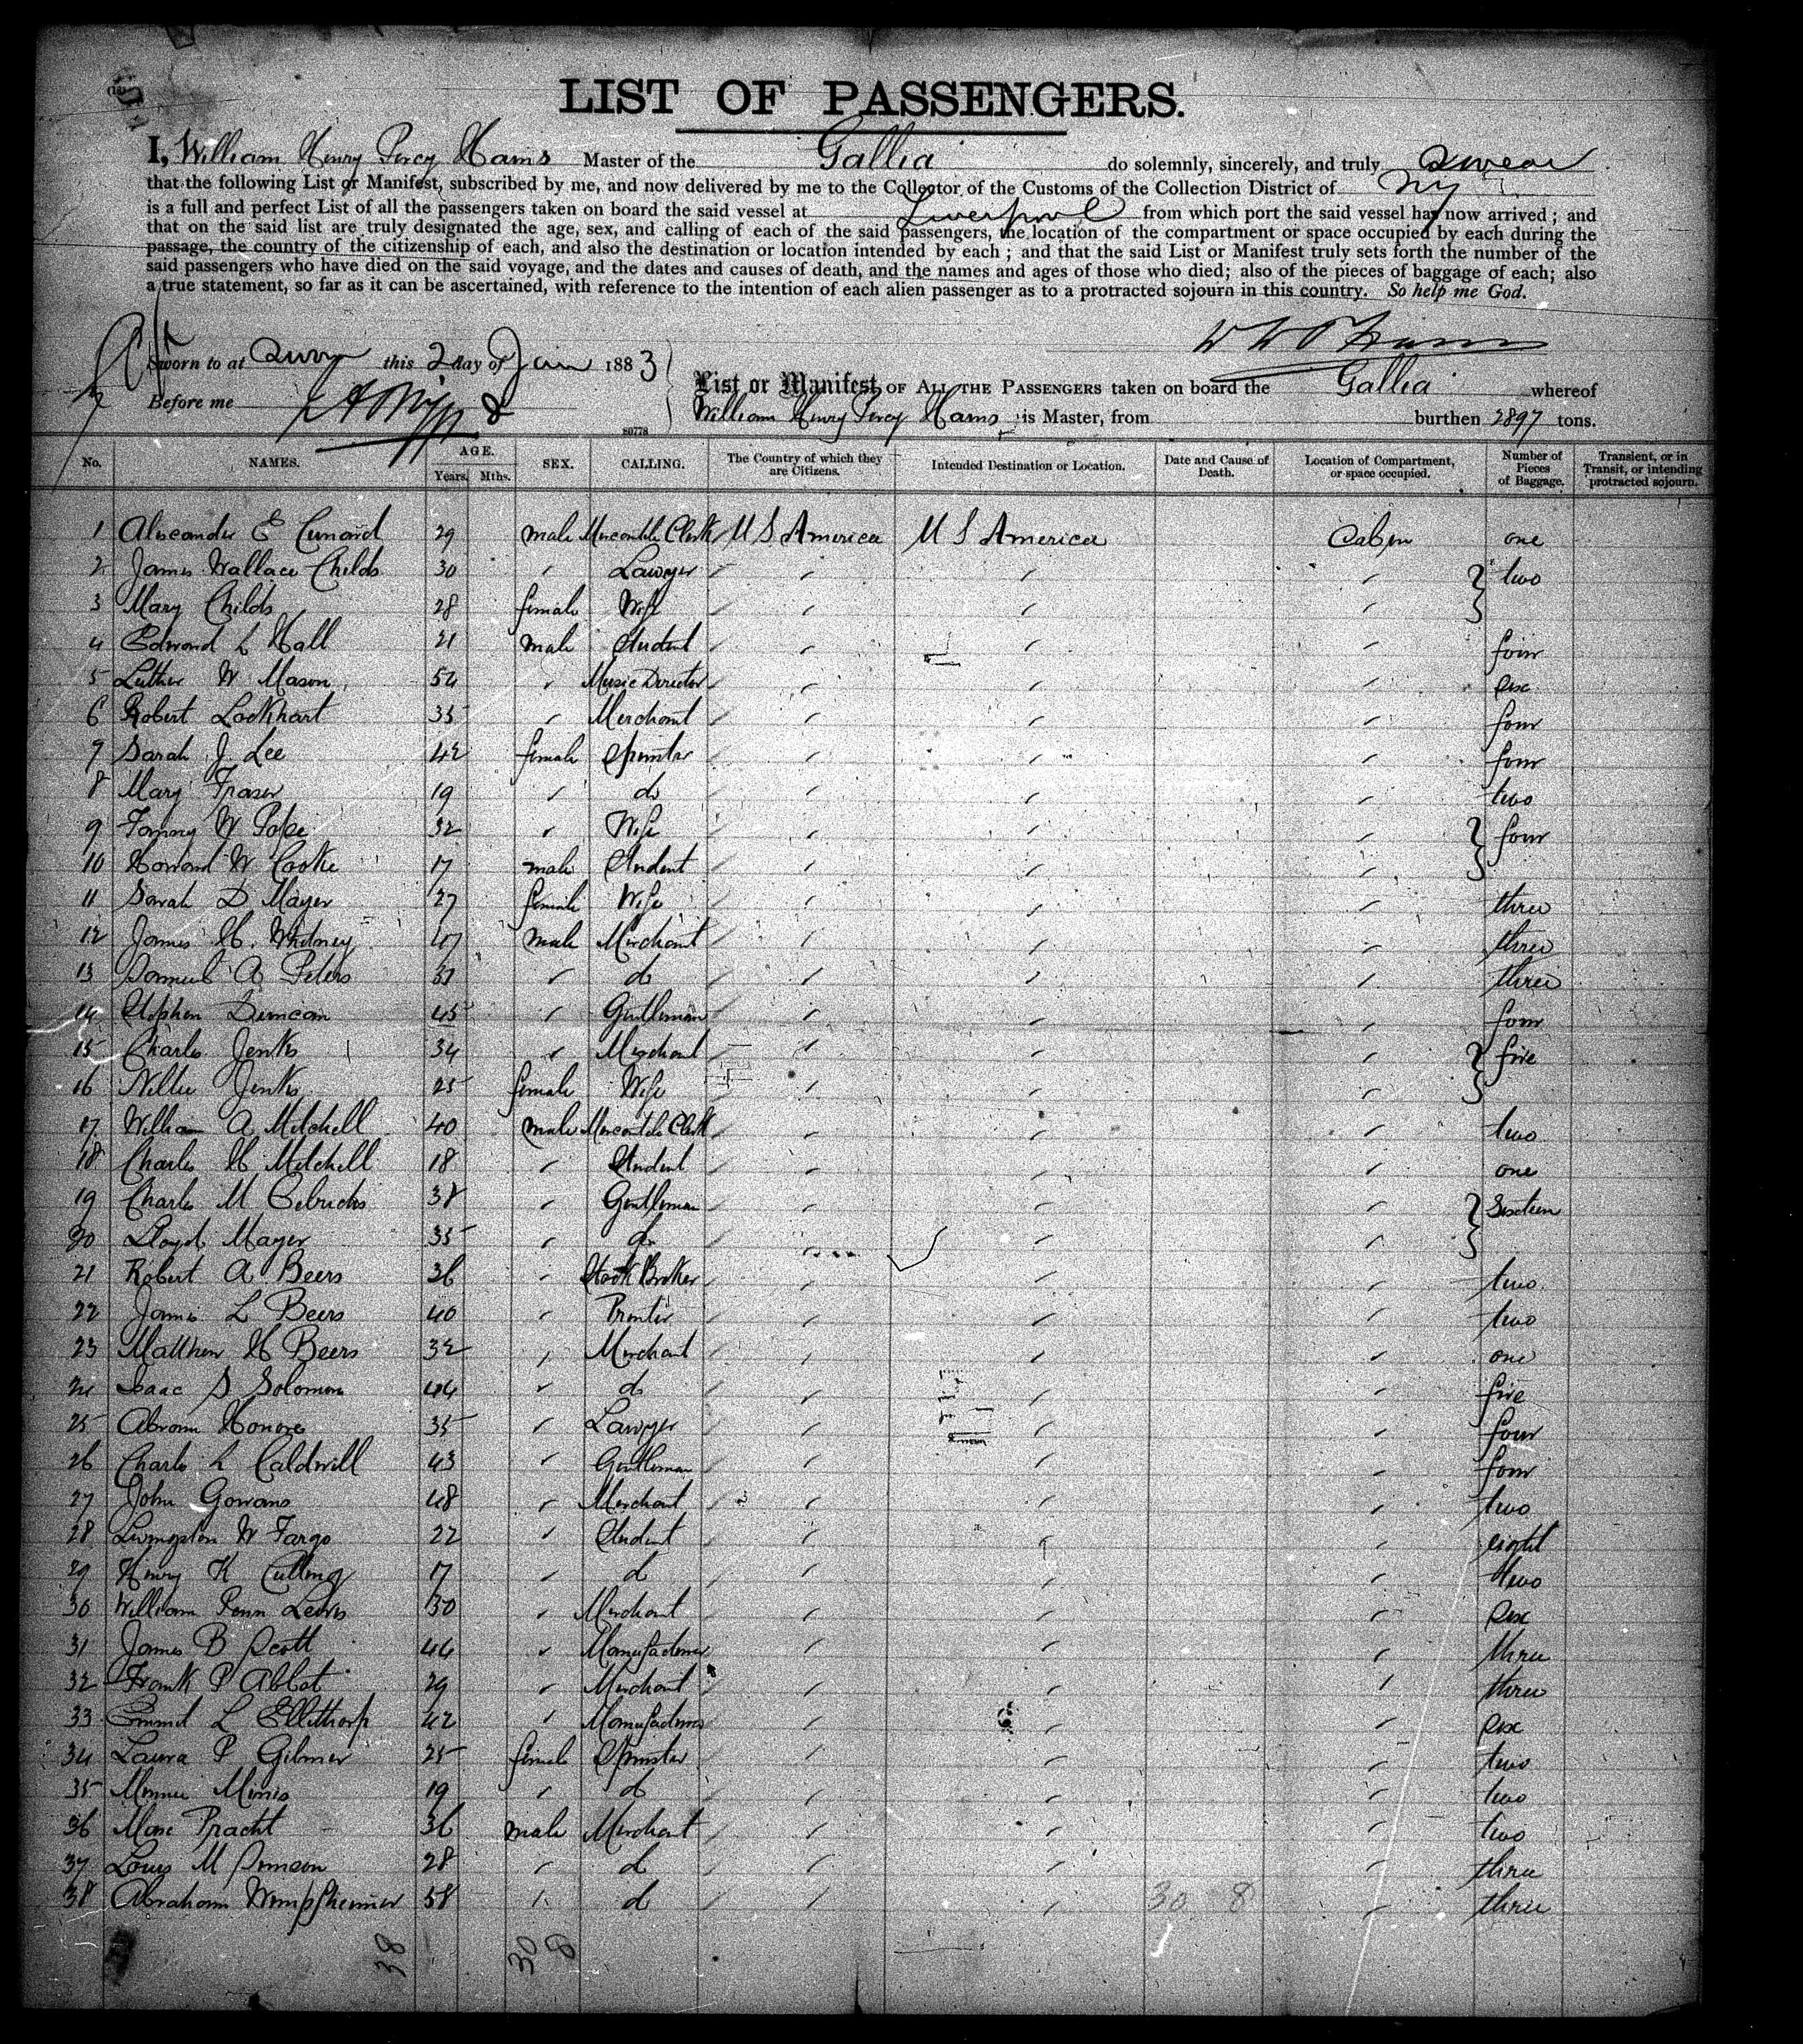 LIST OF PASSENGERS.
I, William Henry Percy Hains Master of the Gallia do solemnly, sincerely, and truly swear
that the following List or Manifest, subscribed by me, and now delivered by me to the Collector of the Customs of the Collection District of NY
is a full and perfect List of all the passengers taken on board the said vessel at Liverpool from which port the said vessel has now arrived; and
that on the said list are truly designated the age, sex, and calling of each of the said passengers, the location of the compartment or space occupied by each during the
passage, the country of the citizenship of each, and also the destination or location intended by each; and that the said List or Manifest truly sets forth the number of the
said passengers who have died on the said voyage, and the dates and causes of death, and the names and ages of those who died; also of the pieces of baggage of each; also
a true statement, so far as it can be ascertained, with reference to the intention of each alien passenger as to a protracted sojourn in this country. So help me God.
Sworn to at this 2 day of Jan 1883
Before me
List or Manifest OF ALL THE PASSENGERS taken on board the Gallia whereof
William Henry Percy Hains is Master, from burthen 2897 tons.
80778
No. NAMES. AGE. Years. Mths. SEX. CALLING. The Country of which they are Citizens. Intended Destination or Location. Date and Cause of Death. Location of Compartment, or space occupied. Number of Pieces of Baggage. Transient, or in Transit, or intending protracted sojourn.
1 Alexander E Cunard 29 male Mercantile Clerk U S America U S America Cabin one
2 James Wallace Childs 30 " Lawyer " " " two
3 Mary Childs 28 female Wife " " "
4 Edward L Hall 21 male Student " " " four
5 Luther W Mason 54 " Music Director " " " six
6 Robert Lockhart 35 " Merchant " " " four
7 Sarah J Lee 42 female Spinster " " " four
8 Mary Fraser 19 " do " " " two
9 Fanny W Pope 32 " Wife " " " four
10 Howard W Cooke 17 male Student " " "
11 Sarah D Mayer 27 female Wife " " " three
12 James H. Whitney 47 male Merchant " " " three
13 Samuel A Peters 31 " do " " " three
14 Stephen Duncan 45 " Gentleman " " " four
15 Charles Jenks 34 " Merchant " " " five
16 Nellie Jenks 25 female Wife " " "
17 William A Mitchell 40 male Mercantile Clerk " " " two
18 Charles H Mitchell 18 " Student " " " one
19 Charles M Oelrichs 38 " Gentleman " " " Sixteen
20 Lloyd Mayer 35 " do " " "
21 Robert A Beers 36 " Stock Broker " " " two
22 James L Beers 40 " Printer " " " two
23 Matthew H Beers 32 " Merchant " " " one
24 Isaac S Solomon 44 " do " " " five
25 Abram Honore 35 " Lawyer " " " four
26 Charles L Caldwell 43 " Gentleman " " " four
27 John Gowans 48 " Merchant " " " two
28 Livingston W Fargo 22 " Student " " " eight
29 Henry K Cutting 17 " do " " " two
30 William Penn Lewis 30 " Merchant " " " six
31 James B Scott 44 " Manufacturer " " " three
32 Frank P Abbot 29 " Merchant " " " three
33 L Ellithorp 42 " Manufacturer " " " six
34 Laura P Gilmer 25 female Spinster " " " two
35 Minnie Mimis 19 " do " " " two
36 Max Pracht 36 male Merchant " " " two
37 Louis M Simson 28 " do " " " three
38 Abraham Wimpfheimer 58 " do " 30 8 " three
38 30 8